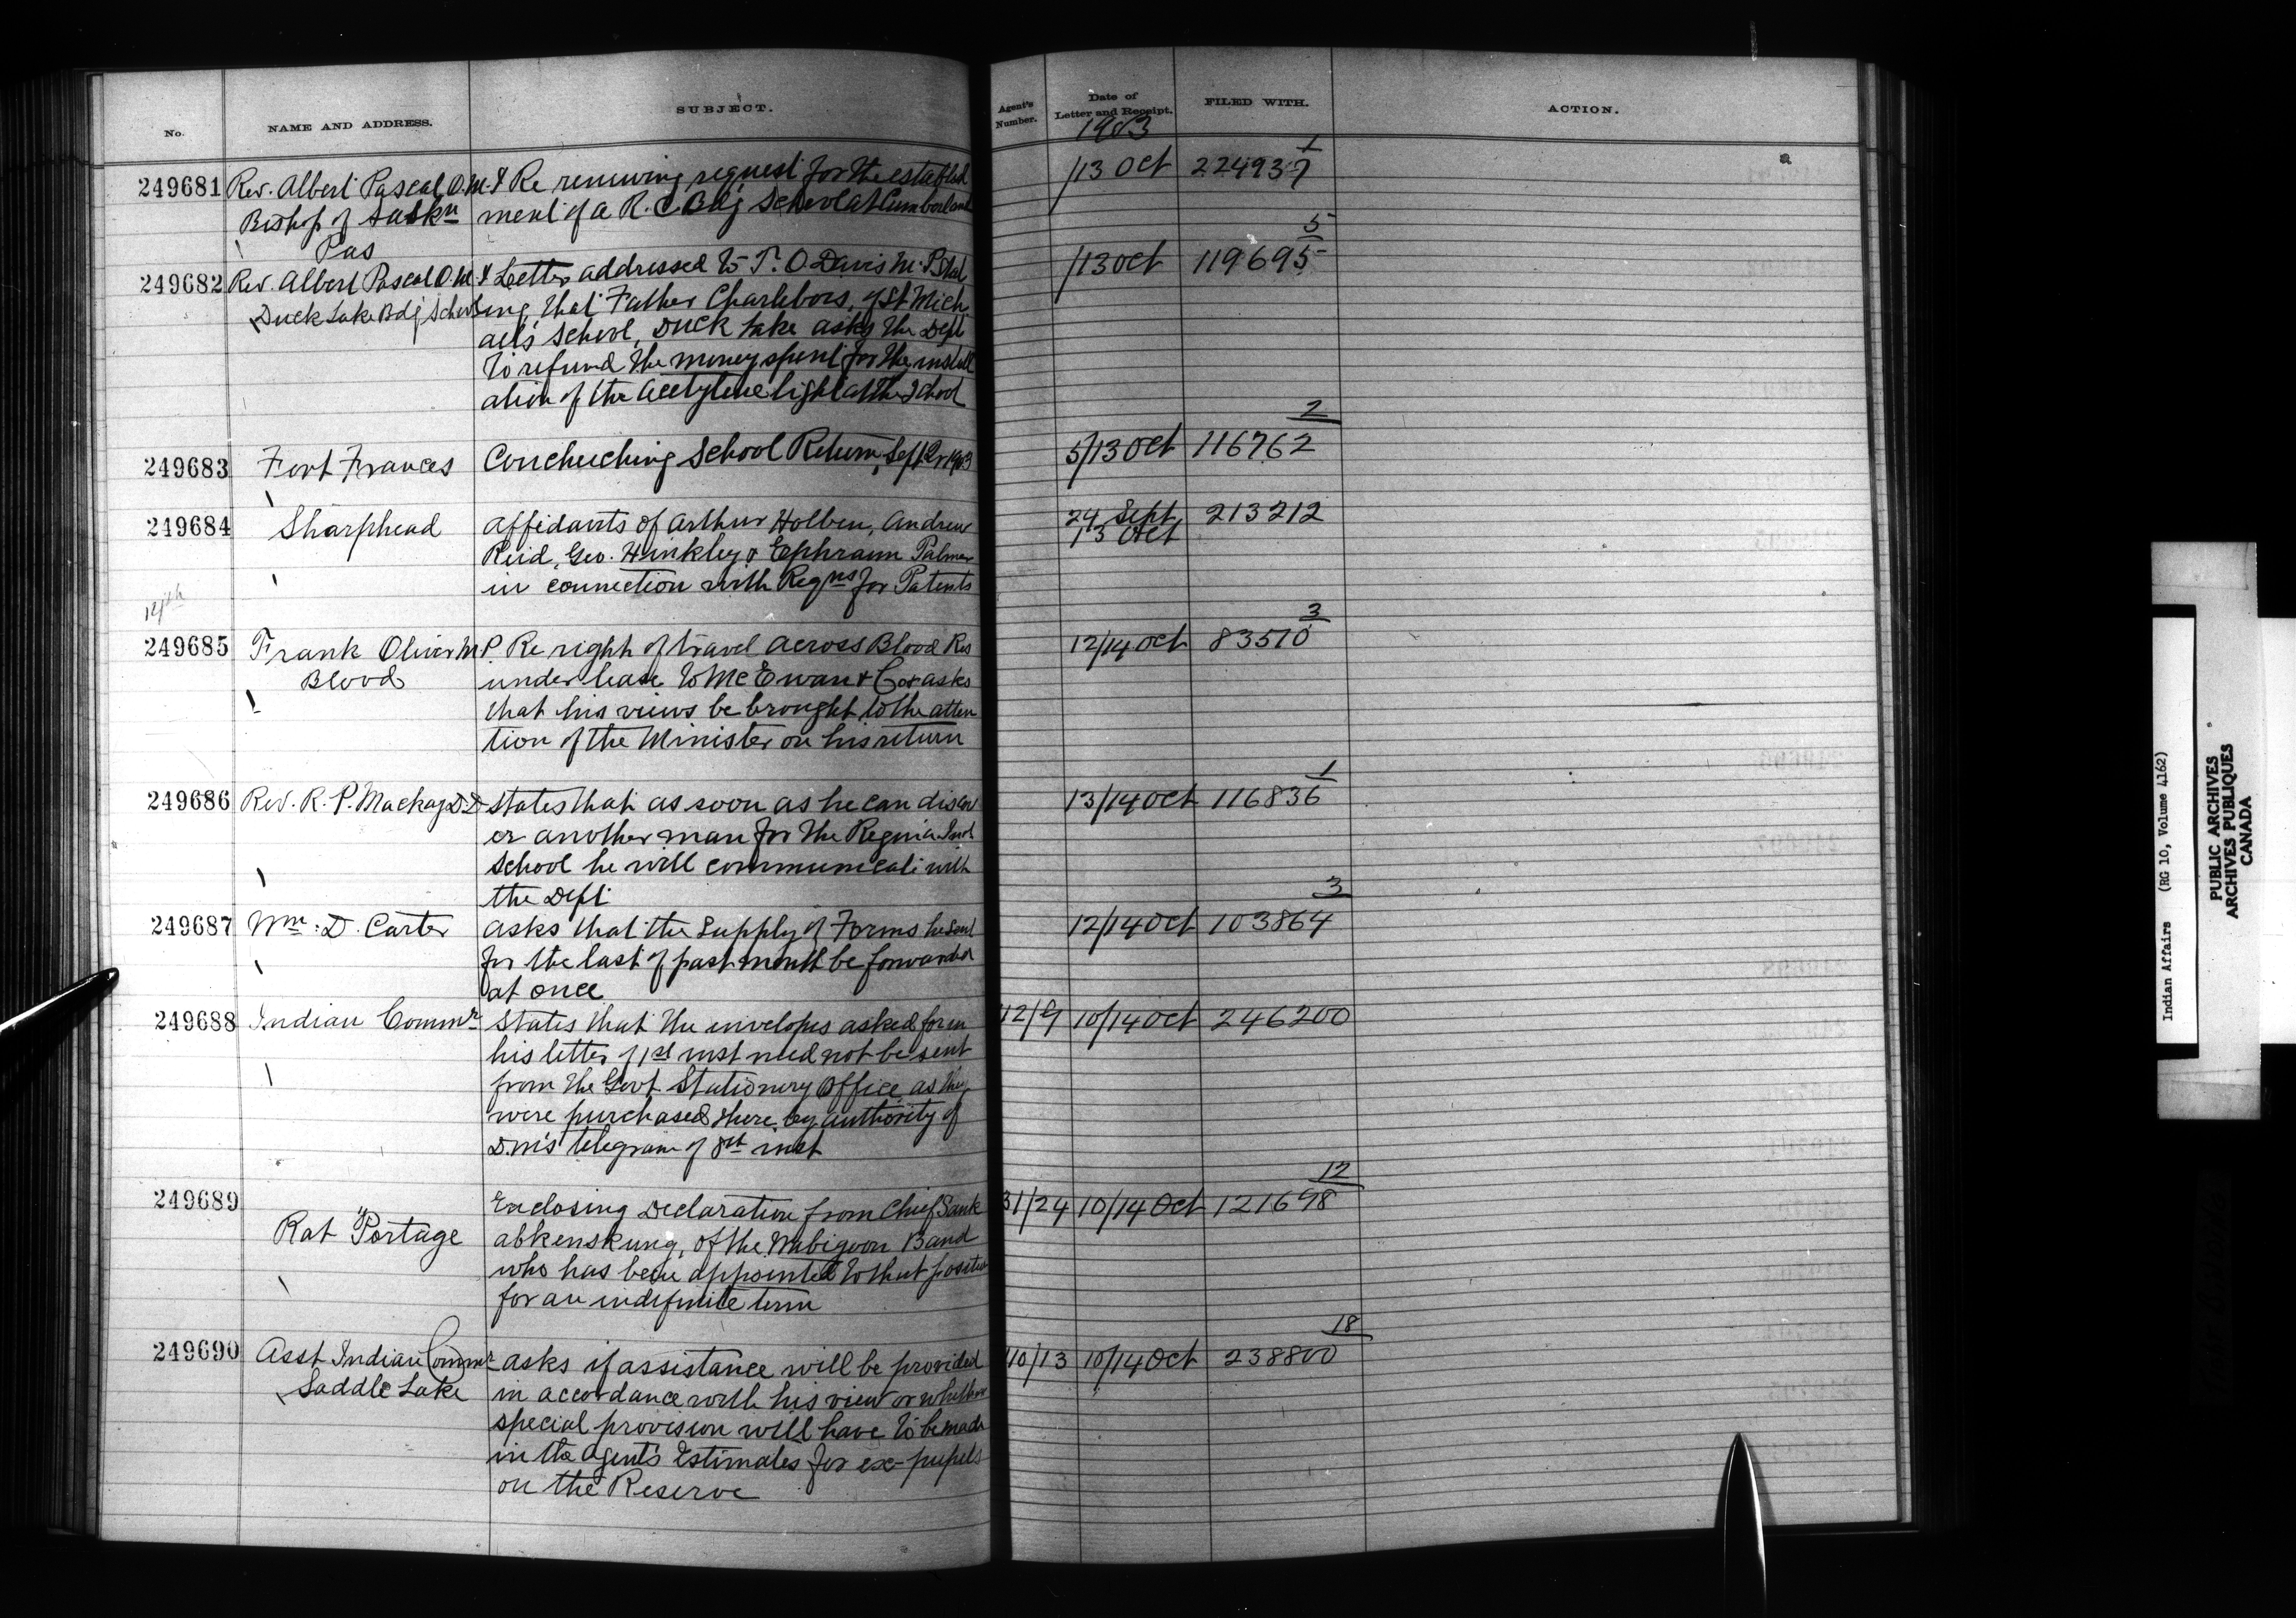 No.
NAME AND ADDRESS.
SUBJECT.
Agent's Number.
Date of Letter and Receipt.
FILED WITH.
ACTION.
1903
249681 Rev. Albert Pascal O.M.I Re renewing request for the establish
Bishop of Saskn ment of a R.C Bdg School at Cumberland
Pas
/13 Oct 224937 1
249682 Rev. Albert Pascal O.M.I Letter addressed to T. O Davis M.P. Stat
Duck Lake Bdg School ing that Father Charlebois, of St Mich
ael's School, Duck Lake asks the Dept
to refund the money spent for the install
ation of the acetylene light at the School
/13 Oct 119695 5
249683 Fort Frances Couchiching School Return, Sept Qr 1903
5/13 Oct 116762 2
249684 Sharphead Affidavits of Arthur Holben, Andrew
Reid, Geo. Hinkley & Ephraim Palmer
in connection with Reqns for Patents
24 Sept 213212
13 Oct
14th
249685 Frank Oliver M.P. Re right of travel across Blood Res
Blood under lease to McEwan & Co asks
that his views be brought to the atten
tion of the Minister on his return
12/14 Oct 83510 3
249686 Rev. R. P. Mackay D.D States that as soon as he can discov
er another man for the Regina Ind
School he will communicate with
the Dept
13/14 Oct 116836 1
249687 Wm. D. Carter asks that the Supply of Forms he sent
for the last of past month be forwarded
at once
12/14 Oct 103864 3
249688 Indian Commr States that the envelopes asked for in
his letter of 1st inst need not be sent
from the Govt Stationery Office, as they
were purchased there by authority of
D.M's telegram of 8th inst
12/9 10/14 Oct 246200
249689
Rat Portage Enclosing Declaration from Chief Sank
abkenskung, of the Wabigoon Band
who has been appointed to that position
for an indefinite term
31/24 10/14 Oct 121698 12
249690 Asst Indian Commr asks if assistance will be provided
Saddle Lake in accordance with his view or whether
special provision will have to be made
in the agent's Estimates for ex-pupils
on the Reserve
110/13 10/14 Oct 238800 18
Indian Affairs (RG 10, Volume 4162)
PUBLIC ARCHIVES
ARCHIVES PUBLIQUES
CANADA